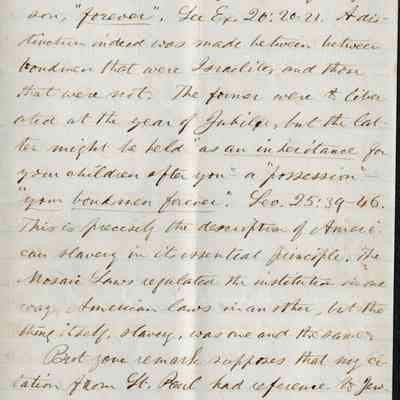 son, "forever". See Ex. 20:20-21. A dis-
tinction indeed was made between between
bondmen that were Israelites and those
that were not. The former were to liber
ated at the year of Jubilee, but the lat-
ter might be held "as an inheritance for
your children after you" a "possession"
"your bondmen forever". Lev. 25:39-46.
This is precisely the description of Ameri-
can slavery in its essential principle. The
Mosaic Laws regulated the institution in one
way, American laws in another, but the
thing itself, slavery, was one and the same.
But your remark supposes that my ci-
tation from St. Paul had reference to Jew